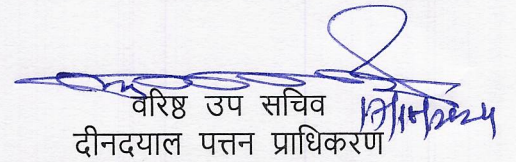 वरिष्ठ उप सचिव
दीनदयाल पत्तन प्राधिकरण